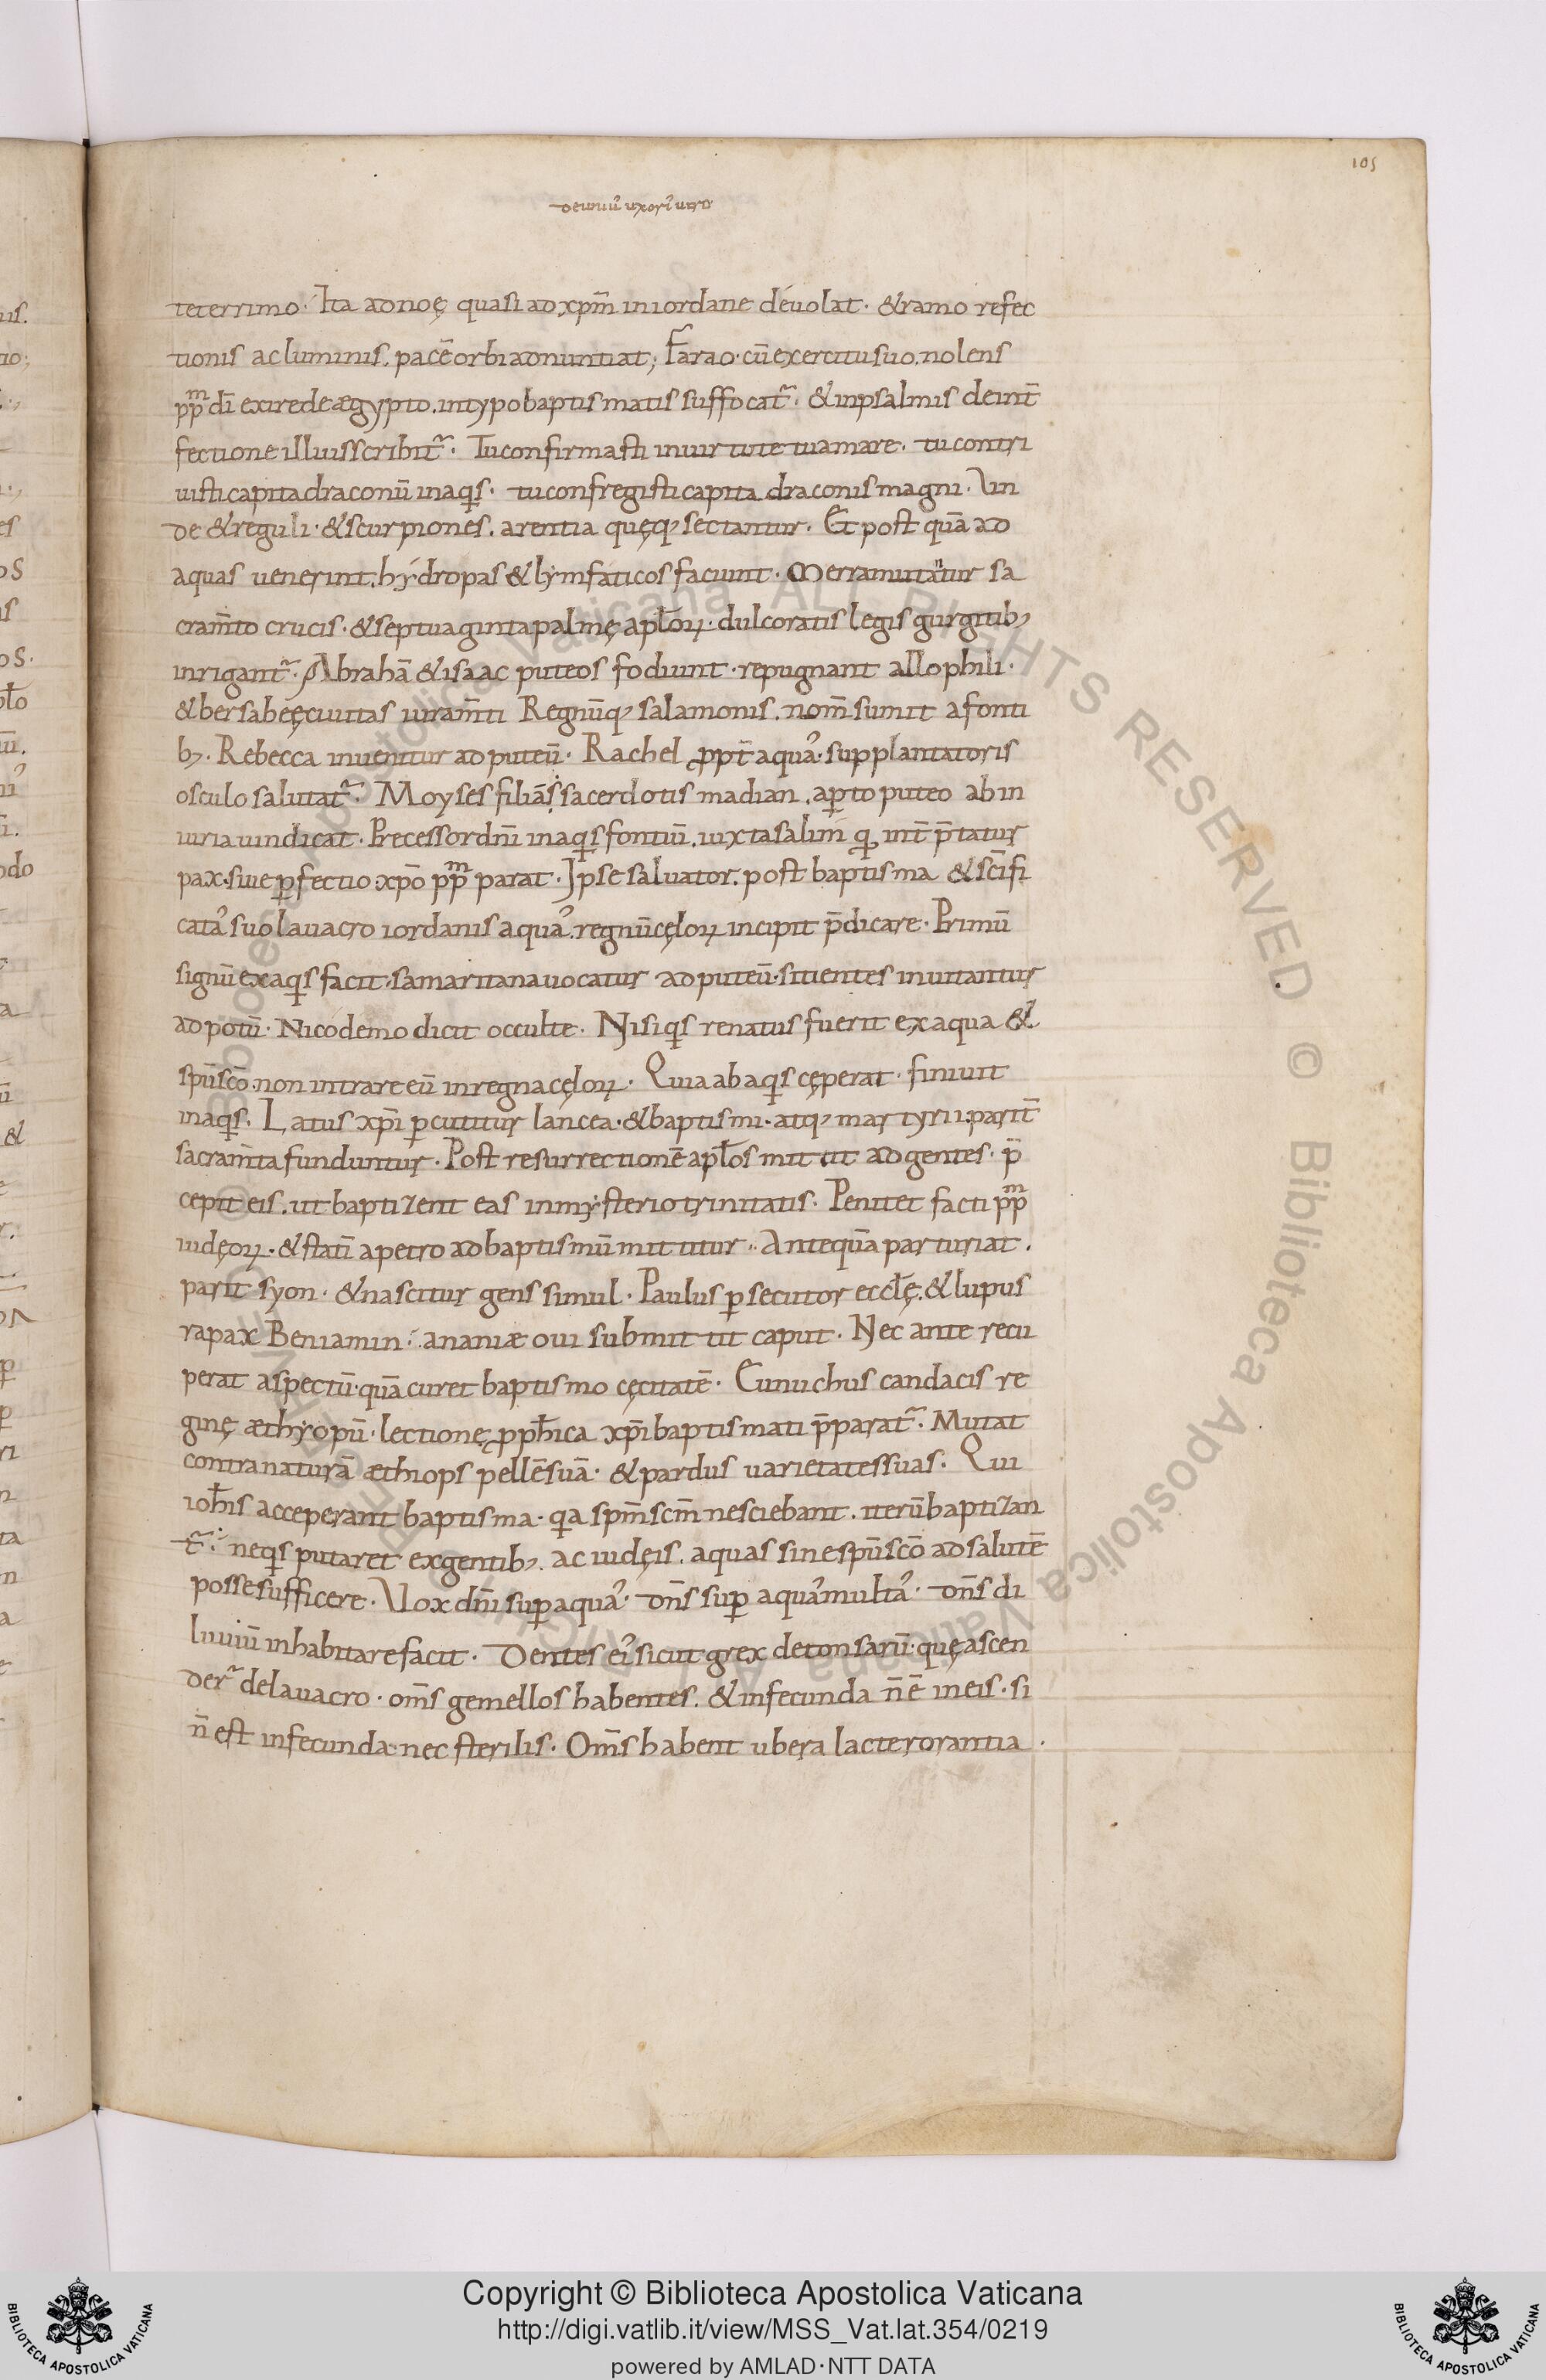 105
de uniũ uxoris uiro
teterrimo. Ita ad noę quasi ad xp̄m in iordane déuolat. & ramo refec
tionis ac luminis. pacē orbi adnuntiat; Farao. cū exercitu suo. nolens
pp̄m dī exire de ægypto. in typo baptismatis suffocat̃. & in psalmis de int̄
fectione illius scribit̃. Tu confirmasti in uirtute tua mare. tu contri
uisti capita draconū in aqis. tu confregisti capita draconis magni. Vn
de & reguli. & scurpiones. arentia quęq; sectantur. Et post quā ad
aquas uenerint. hýdropas & lymfaticos faciunt. Merra mutatur sa
cram̄to crucis. & septuaginta palmę apl̄oꝝ. dulcoratis legis gurgitib;
inrigant̃. Abrahā & isaac puteos fodiunt. repugnant allophili.
& bersabeę ciuitas iuram̄ti Regnūq; salamonis. nom̄ sumit a fonti
b;. Rebecca inuenitur ad puteū. Rachel ꝓpt̄ aquā. supplantatoris
osculo salutat̃. Moyses filiās sacerdotis madian. aꝑto puteo ab in
iuria uindicat. Precessor dn̄i in aqis fontiū. iuxta salim q int̄ p̄tatur
pax. siue ꝑfectio xp̄o pp̄m parat. Ipse saluator. post baptisma & sc̄ifi
catā suo lauacro iordanis aquā. regnū cęloꝝ incipit p̄dicare. Primū
signū ex aqis facit. samaritana uocatur ad puteū. sitientes inuitantur
ad potū. Nicodemo dicit occulte. Nisi qis renatus fuerit ex aqua &
sp̄u sc̄o. non intrare eū in regna cęloꝝ. Quia ab aqis cęperat. finiuit
in aqis. Latus xp̄i ꝑcutitur lancea. & baptismi. atq; martyrii. parit̄
sacram̄ta funduntur. Post resurrectionē apl̄os mittit ad gentes. p̄
cepit eis. ut baptizent eas in mysterio trinitatis. Penitet facti pp̄m
iudęoꝝ. & statī a petro ad baptismū mittitur. Antequā parturiat.
parit syon. & nascitur gens simul. Paulus ꝑsecutor eccl̄ę. & lupus
rapax Beniamin. ananiæ oui submittit caput. Nec ante recu
perat aspectū. quā curet baptismo cęcitatē. Eunuchus candacis re
ginę æthyopū. lectionę ꝓph̄ica xp̄i baptismati p̄parat̃. Mutat
contra naturā æthiops pellē suā. & pardus uarietates suas. Qui
ioh̄is acceperant baptisma. qa sp̄m sc̄m nesciebant. iterū baptizan
t̃. ne qis putaret ex gentib;. ac iudęis. aquas sine sp̄u sc̄o ad salutē
posse sufficere. Vox dn̄i suꝑ aquā. dn̄s suꝑ aquā multā. dn̄s di
luuiū inhabitare facit. Dentes ei' sicut grex detonsarū. quę ascen
der̃ de lauacro. om̄s gemellos habentes. & infecunda n̄ ē in eis. si
n̄ est infecunda nec sterilis. Om̄s habent ubera lacte rorantia.
© Biblioteca Apostolica Vaticana ALL RIGHTS RESERVED © Biblioteca Apostolica Vaticana ALL RIGHTS RESERVED
Copyright © Biblioteca Apostolica Vaticana
http://digi.vatlib.it/view/MSS_Vat.lat.354/0219
powered by AMLAD·NTT DATA
BIBLIOTECA APOSTOLICA VATICANA
BIBLIOTECA APOSTOLICA VATICANA